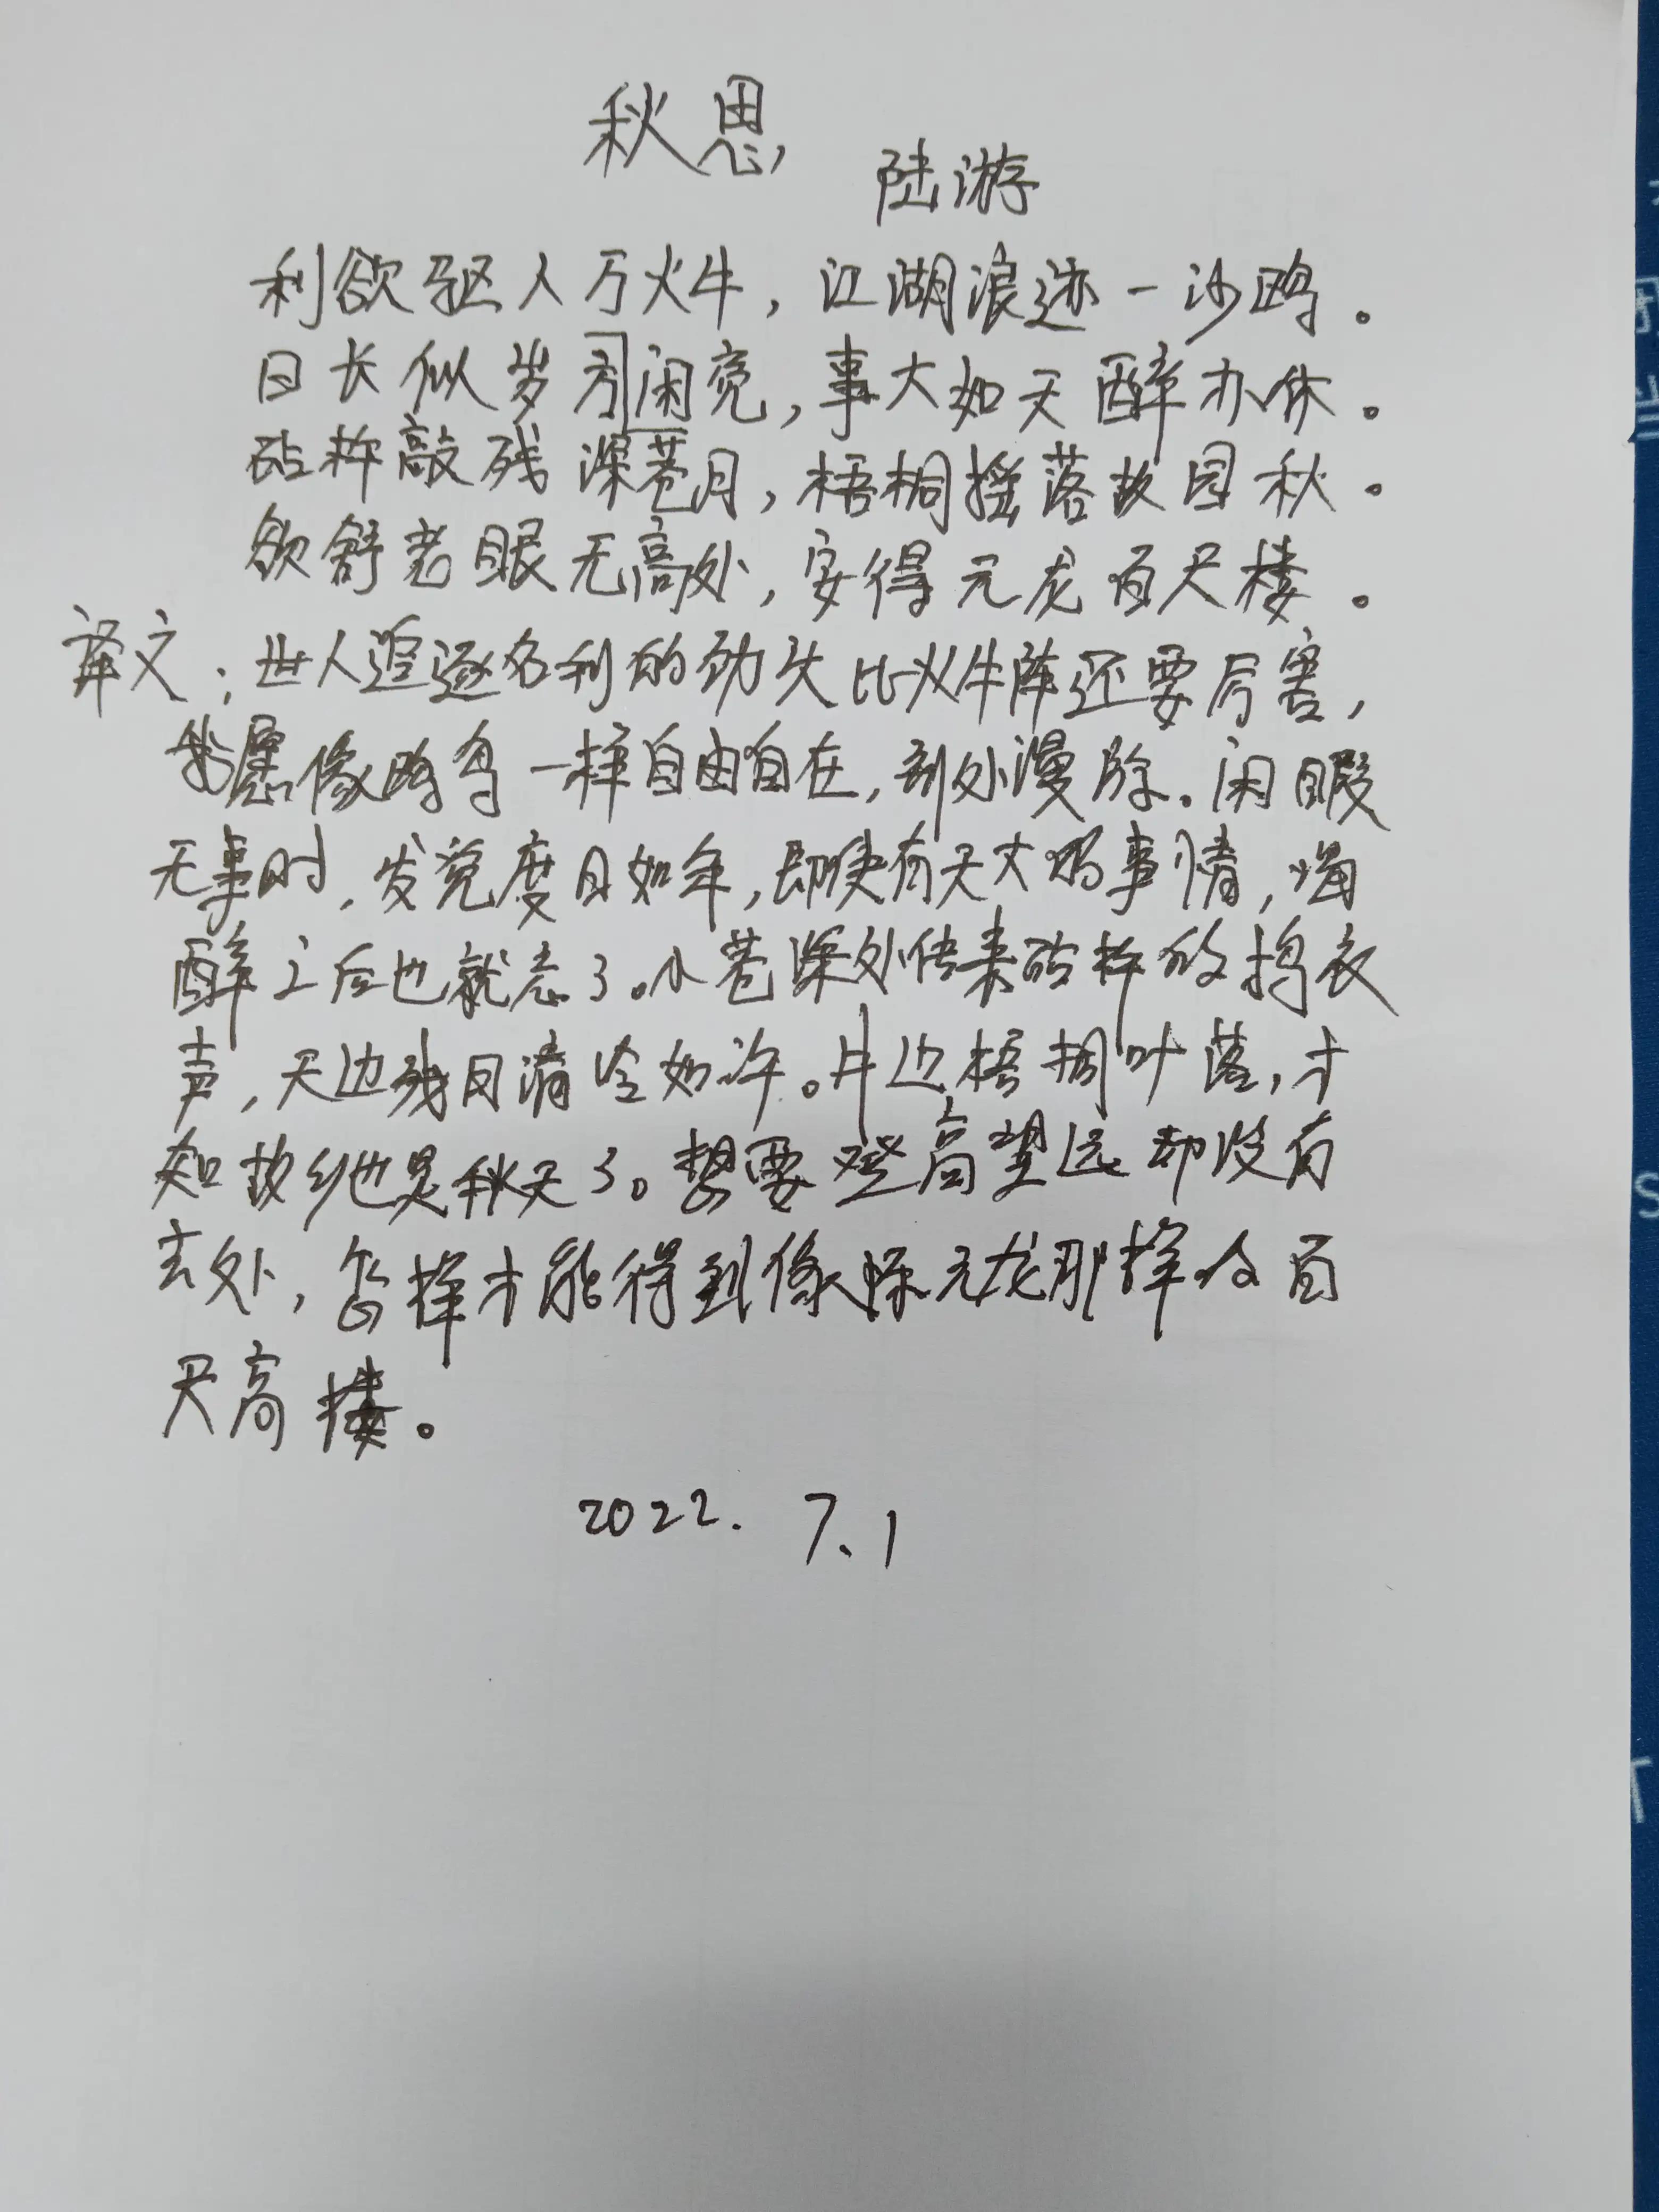 秋思
陆游
利欲驱人万火牛，江湖浪迹一沙鸥。
日长似岁闲觉，事大如天醉亦休。
砧杵敲残深巷月，梧桐摇落故园秋。
欲舒老眼无高处，安得元龙百尺楼。
译文：世人追逐名利的劲头比火牛阵还要厉害，
我愿像鸥鸟一样自由自在，到处漫除。闲暇
无事时，发觉度日如年，即使有天大的事情，喝
醉之后也就忘了。小巷深处传来砧杵的捣衣
声，天边残月清冷如许。井边梧桐叶落，才
知故乡也是秋天了。想要登高望远却没有
去处，怎样才能得到像陈元龙那样的百
尺高楼。
2022. 7.1
S
T